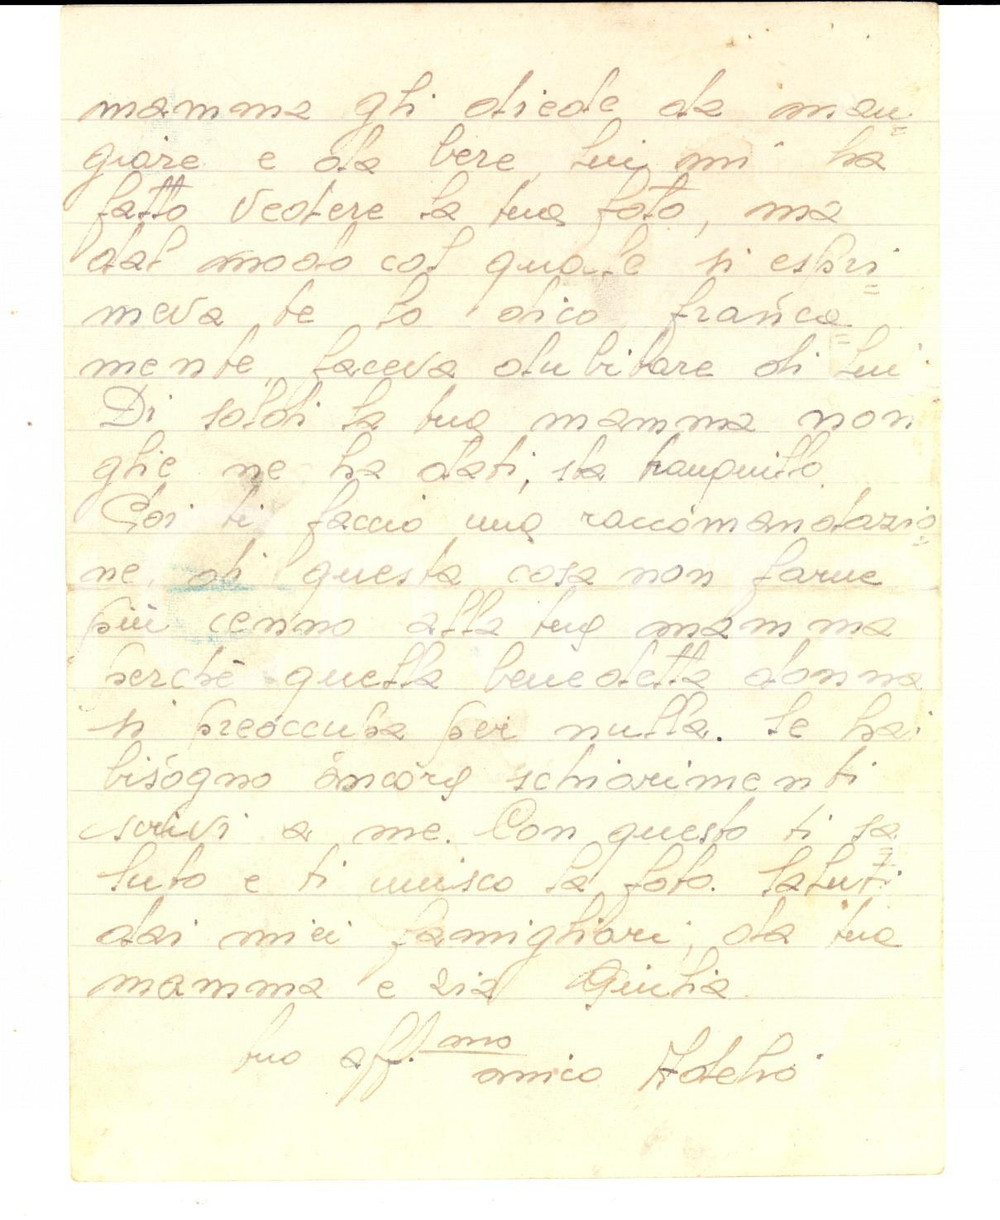 mamma gli diede da man=
giare e da bere, lui mi ha
fatto vedere la tua foto, ma
dal modo col quale si espri=
meva te lo dico franca=
mente, faceva dubitare di lui.
Di soldi la tua mamma non
glie ne ha dati, sta tranquillo.
Poi ti faccio una raccomandazio=
ne, di questa cosa non farne
più cenno alla tua mamma
perchè quella benedetta donna
si preoccupa per nulla. Se hai
bisogno ancora schiarimenti
scrivi a me. Con questo ti sa=
luto e ti unisco la foto. Saluti
dai miei famigliari, da tua
mamma e zia Giulia.
tuo aff.mo
amico Adelio